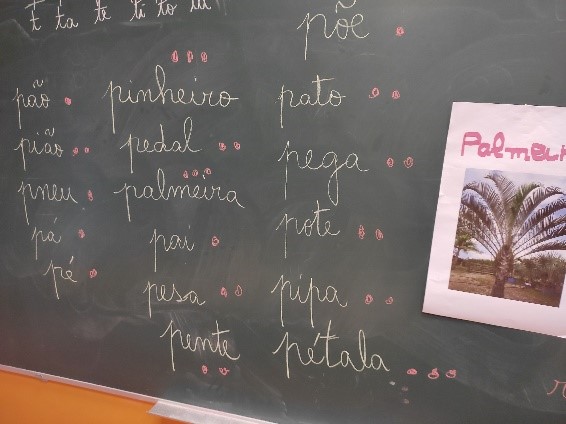 t ta te ti to tu
põe
pão
pião
pneu
pá
pé
pinheiro
pedal
palmeira
pai
pesa
pente
pato
pega
pote
pipa
pétala